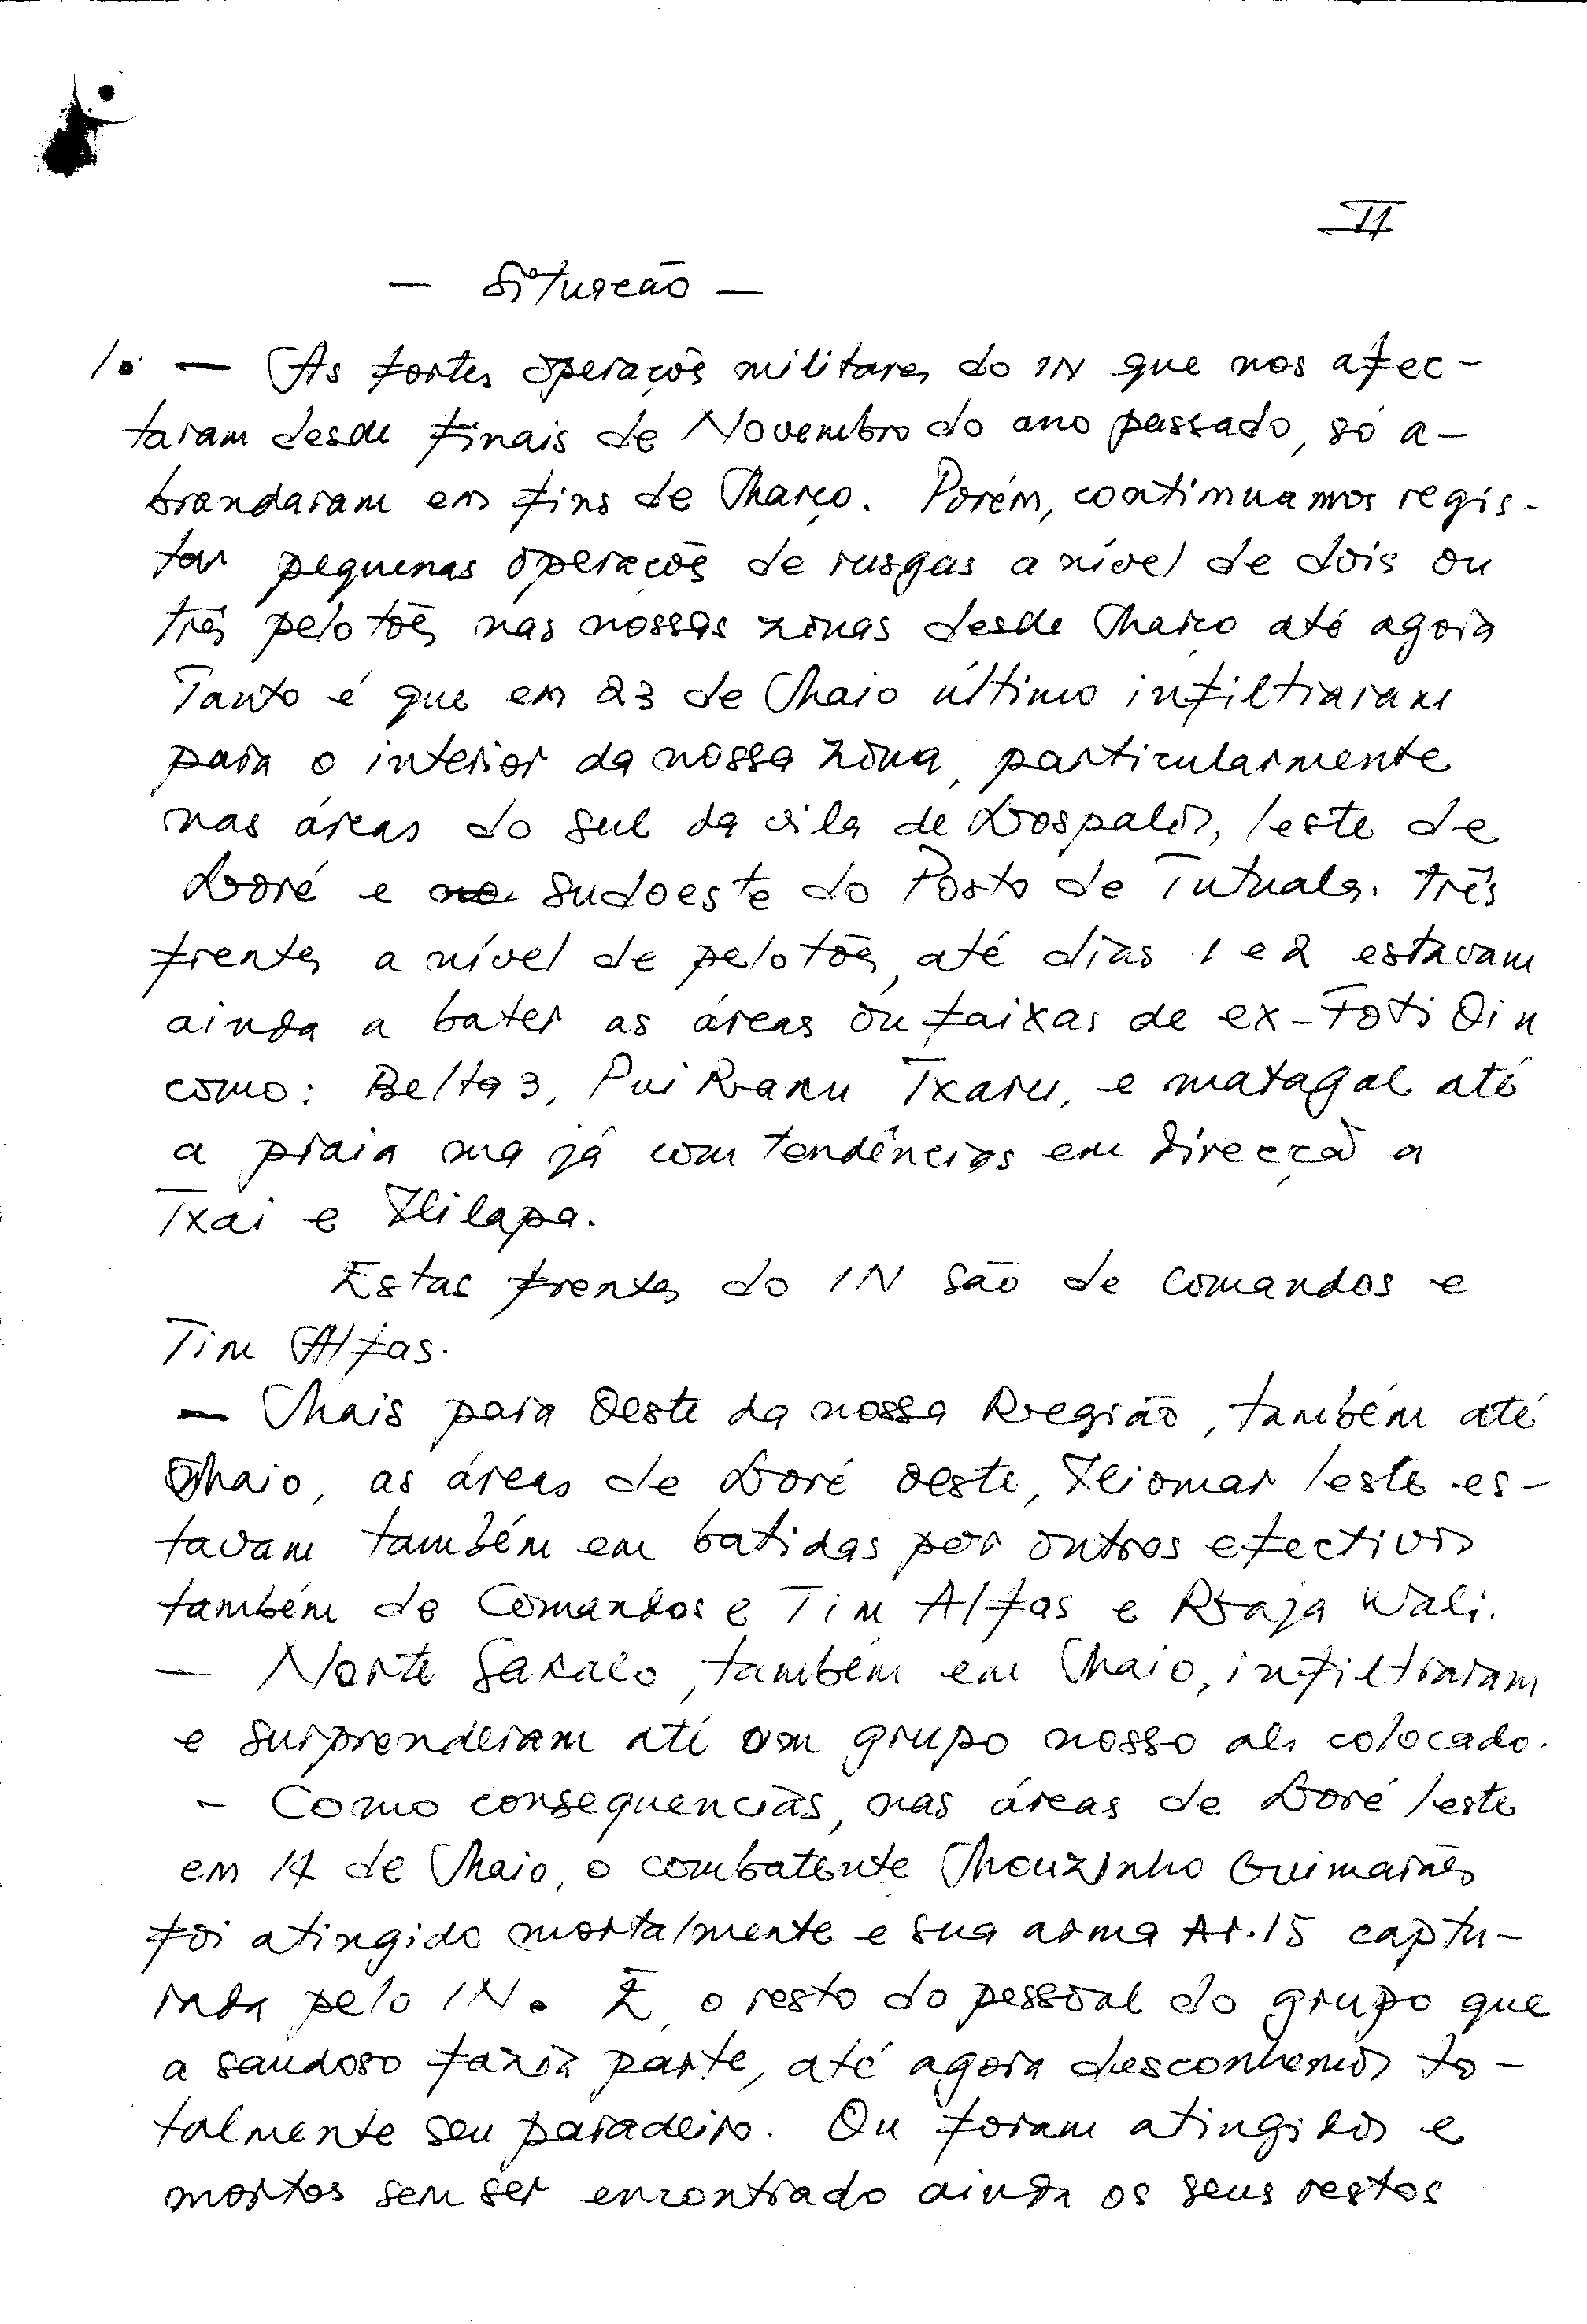 II
— Situação —
1. — As fortes operações militares do IN que nos afec-
taram desde finais de Novembro do ano passado, só a-
brandaram em fins de Março. Porém, continuamos regis-
tar pequenas operações de rusgas a nível de dois ou
três pelotões nas nossas zonas desde Março até agora
Tanto é que em 23 de Maio último infiltraram
para o interior da nossa zona, particularmente
nas áreas do sul da vila de Lospalos, leste de
Loré e no sudoeste do Posto de Tutuala. três
frentes a nível de pelotões, até dias 1 e 2 estavam
ainda a bater as áreas ou faixas de ex-Foti Oin
como: Belta 3, Pui Ranu Txaru, e matagal até
a praia ma já com tendências em direcçã a
Txai e Ililapa.
Estas frentes do IN são de comandos e
Tim Alfas.
— Mais para Oeste da nossa Região, também até
Maio, as áreas de Loré oeste, Iliomar leste es-
tavam também em batidas por outros efectivos
também de Comandos e Tim Alfas e Raja Wali.
— Norte Saralo, também em Maio, infiltraram
e surprenderam até um grupo nosso ali colocado.
- Como consequencias, nas áreas de Loré leste
em 14 de Maio, o combatente Mouzinho Guimarães
foi atingido mortalmente e sua arma Ar.15 captu-
rada pelo IN. E, o resto do pessoal do grupo que
a saudoso fazia parte, até agora desconhemos to-
talmente seu paradeiro. Ou foram atingidos e
mortos sem ser encontrado ainda os seus restos